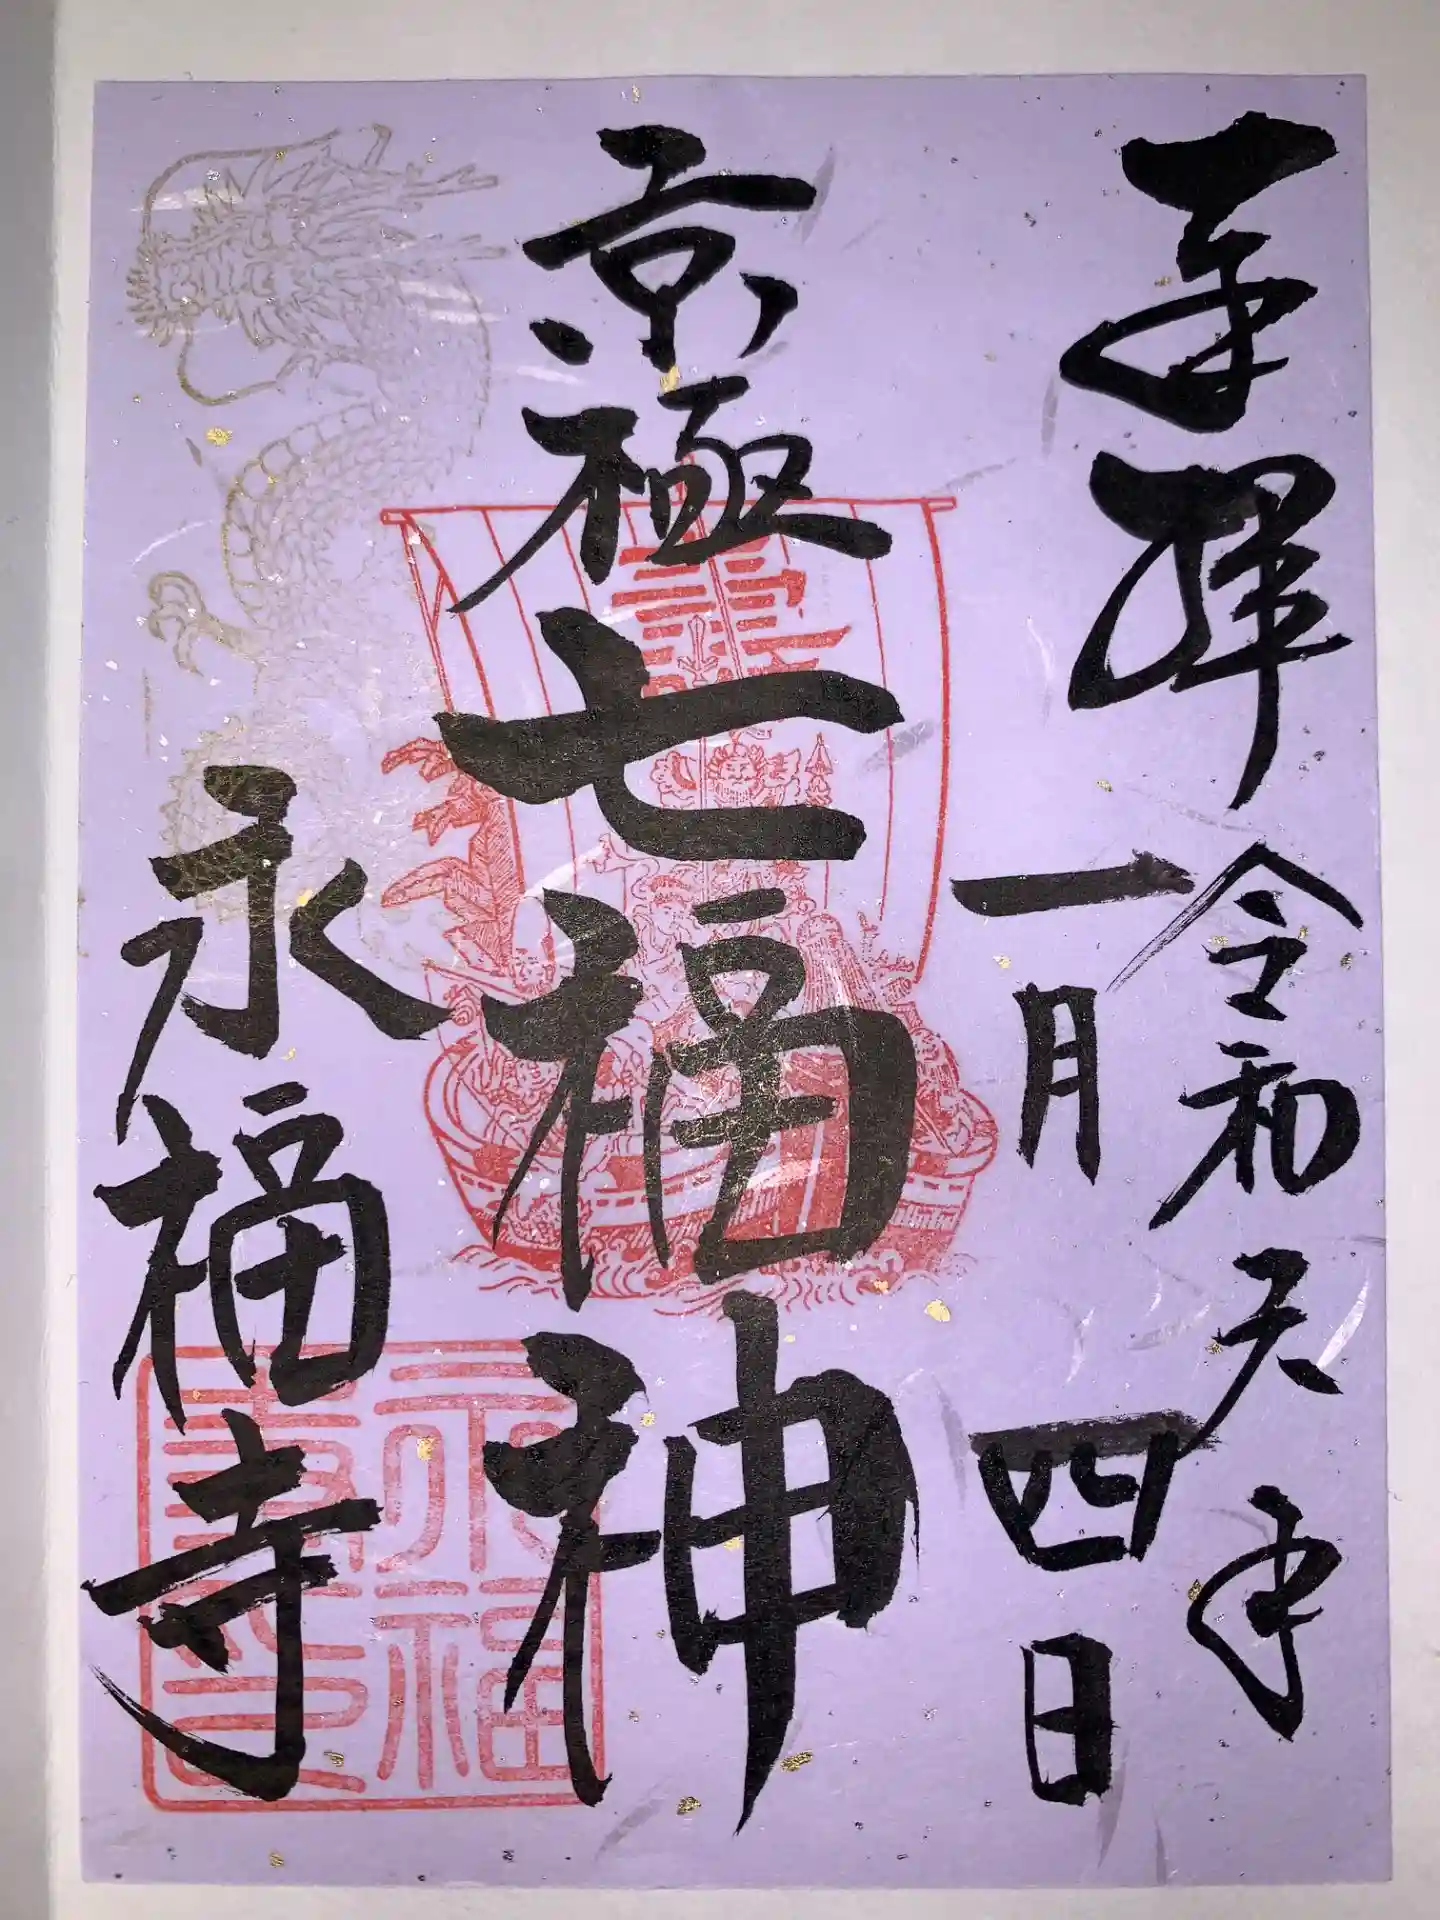 奉拝 令和六年
一月四日
京極七福神
永福寺
永福